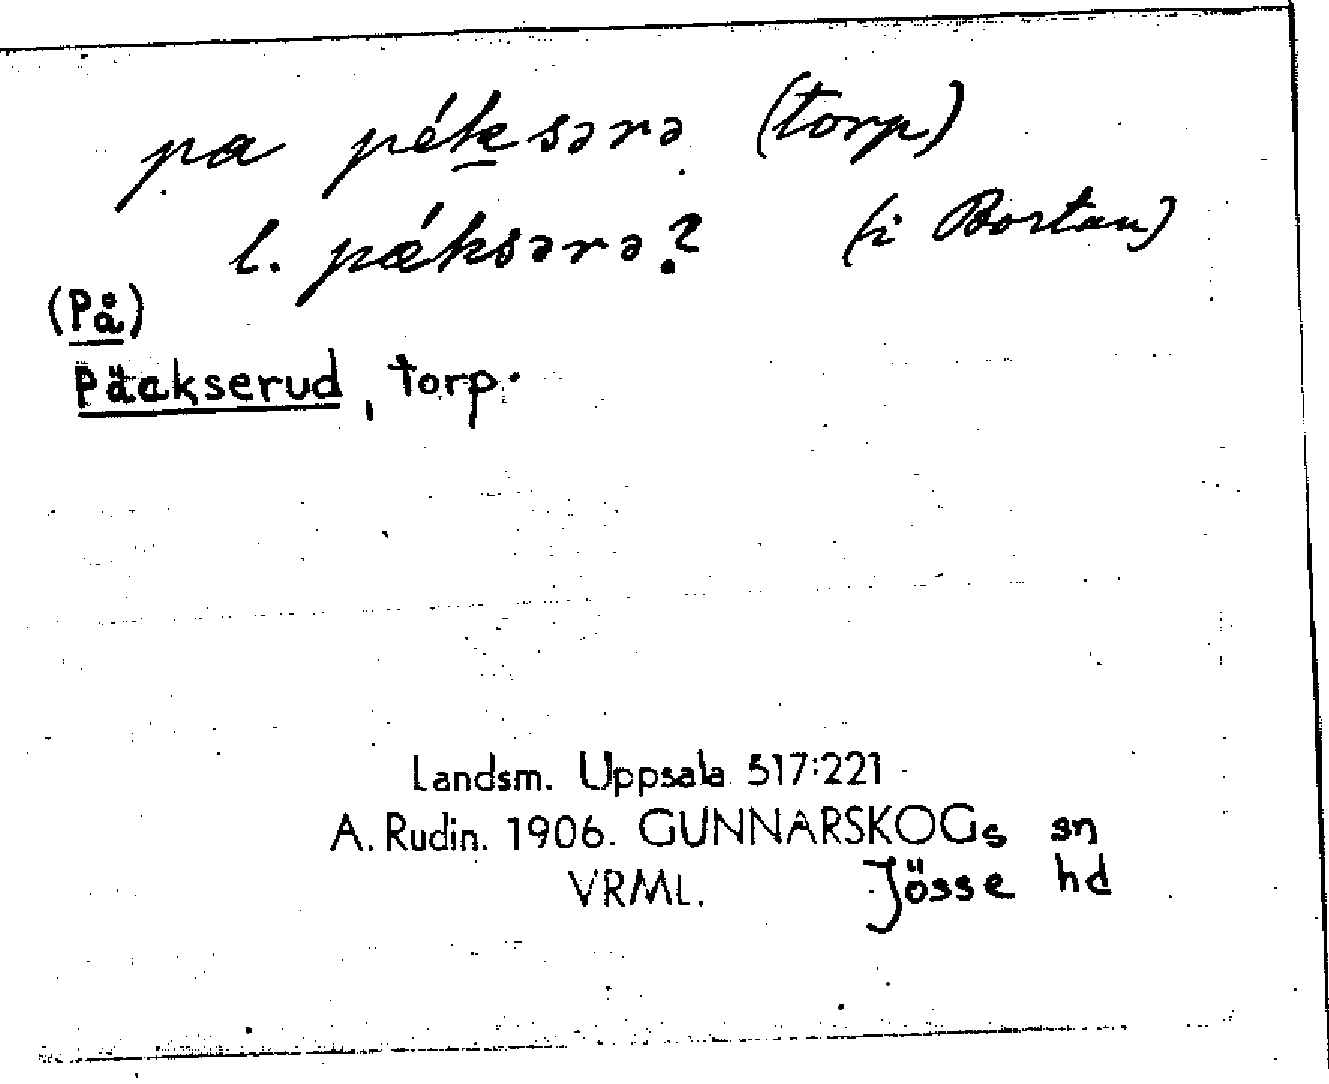 pa péksərə (torp)
l. pǽksərə? (i Bortan)
(På)
Päckserud, torp.
Landsm. Uppsala 517:221
A. Rudin. 1906. GUNNARSKOGs sn
VRML. Jösse hd